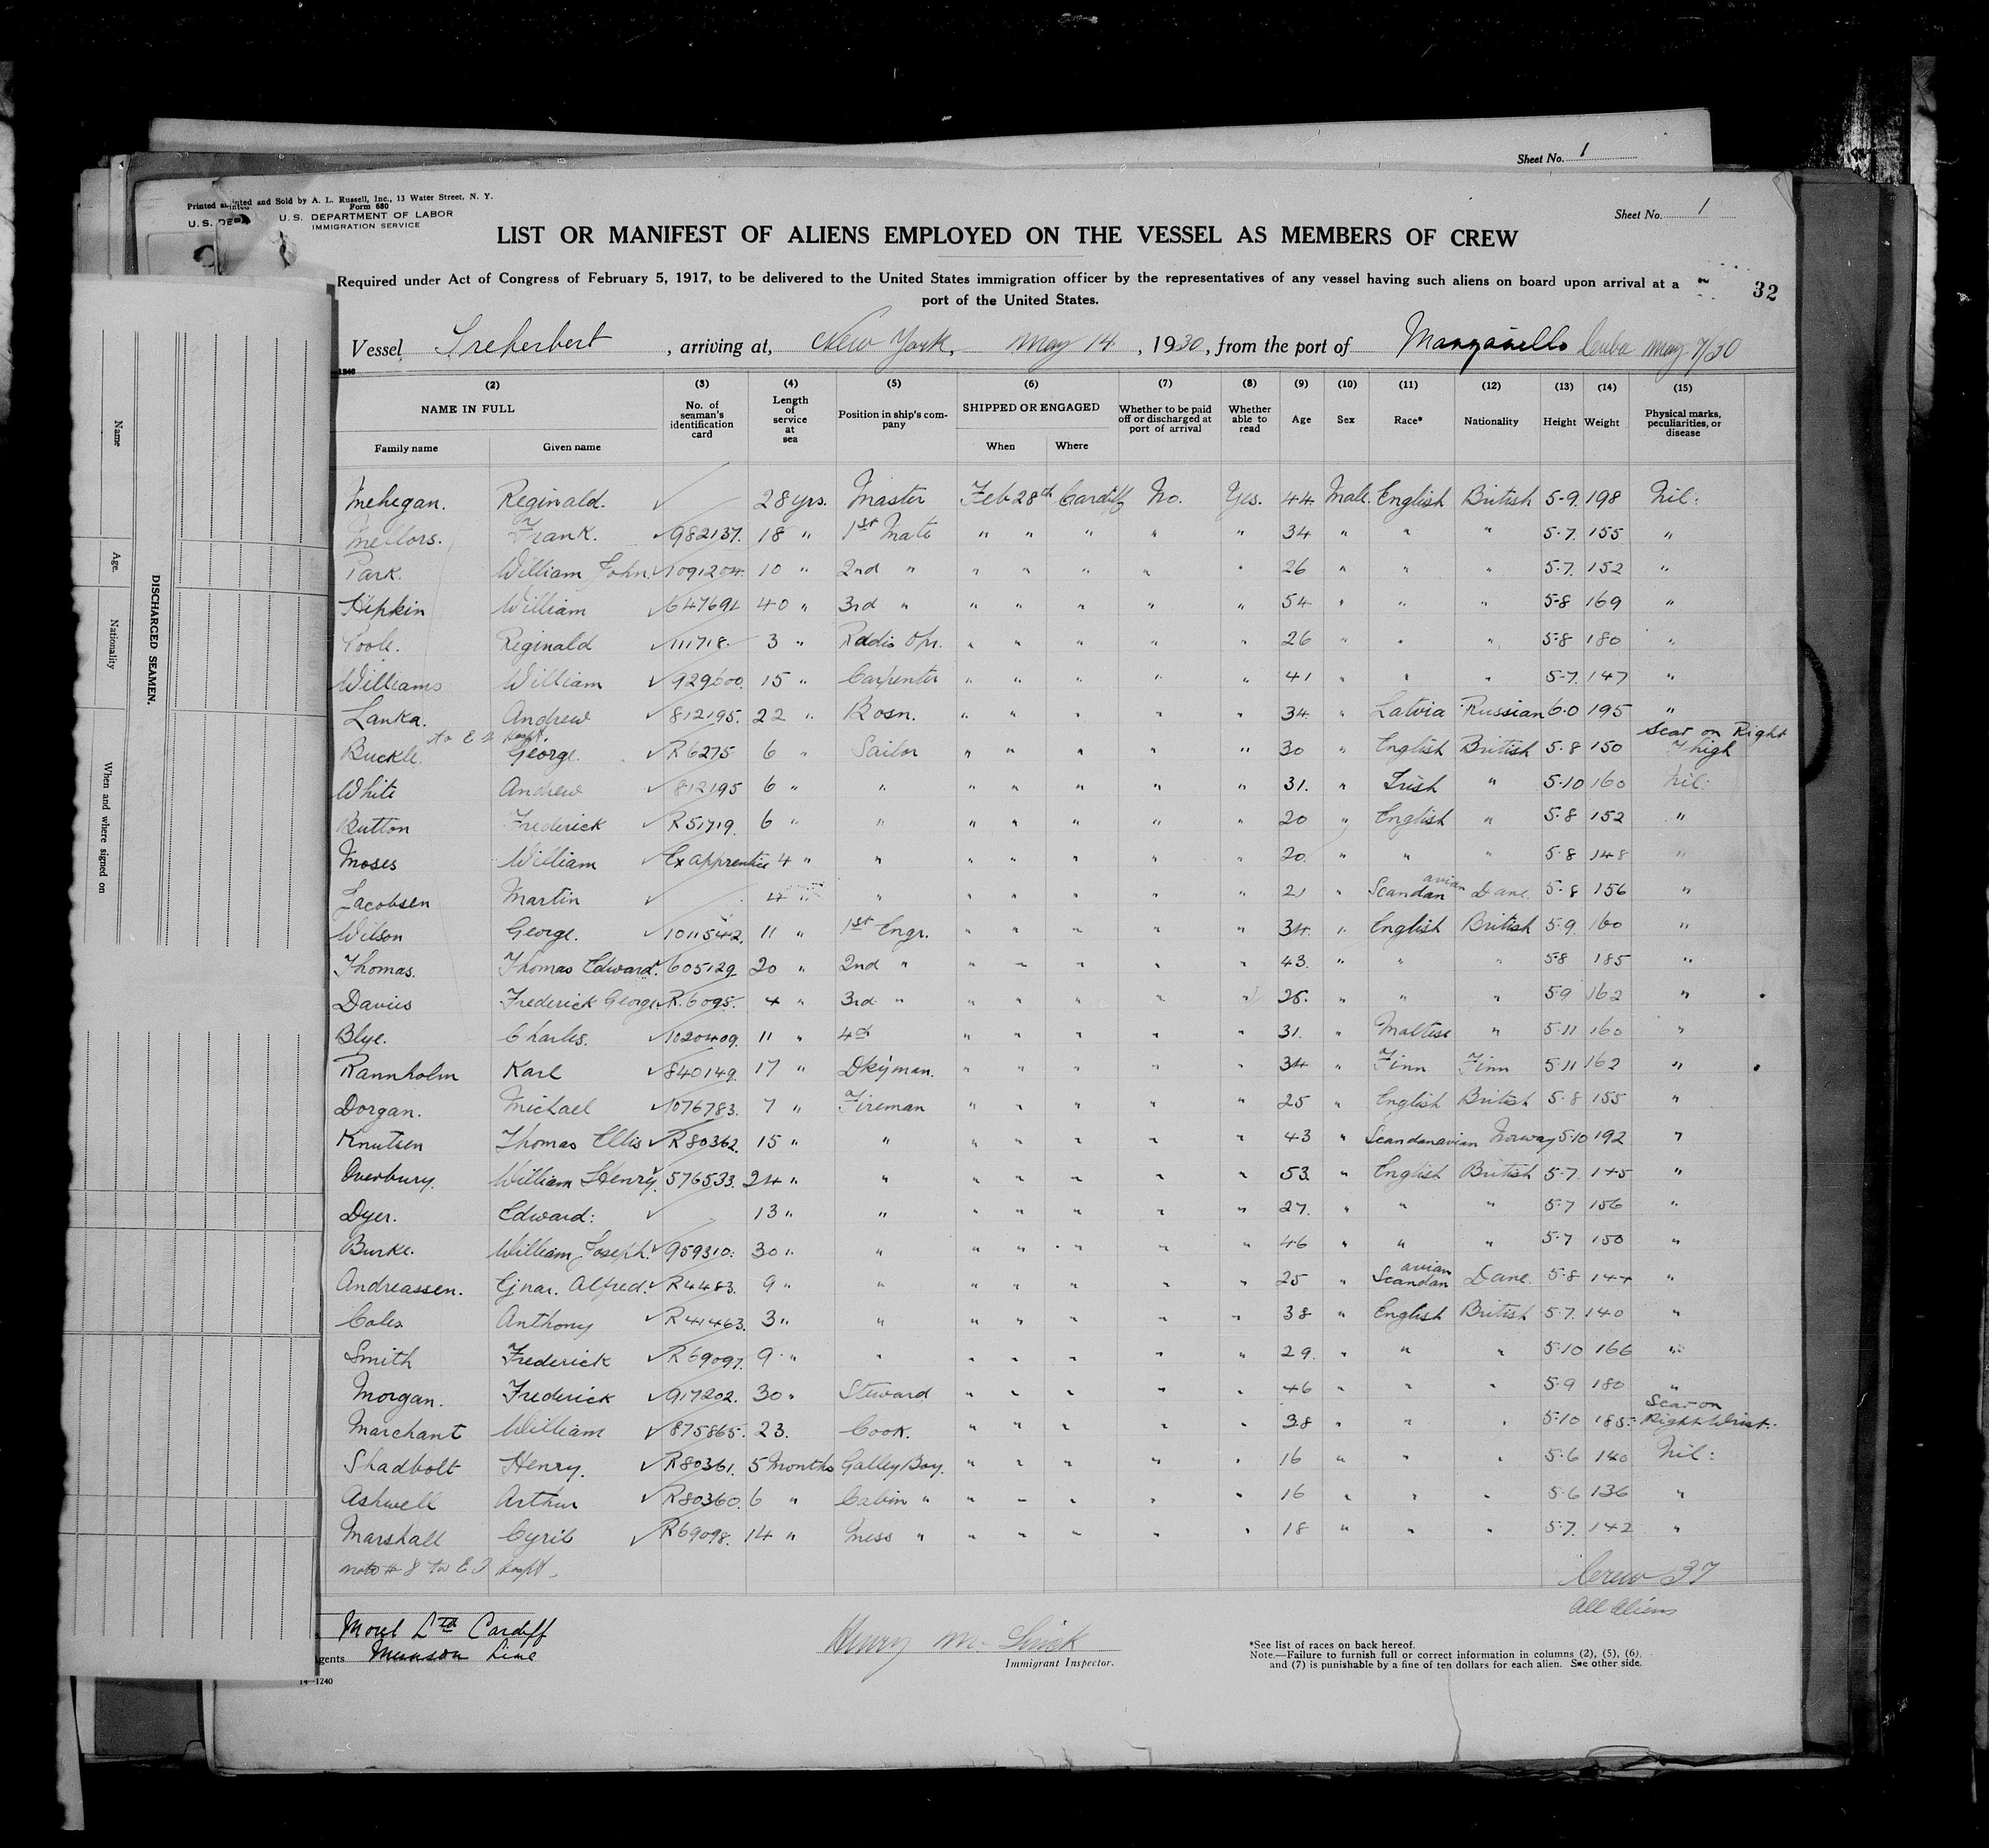 Sheet No. 1
Printed and Sold by A. L. Russell, Inc., 13 Water Street, N. Y.
Form 680
U. S. DEPARTMENT OF LABOR
IMMIGRATION SERVICE
Sheet No. 1
LIST OR MANIFEST OF ALIENS EMPLOYED ON THE VESSEL AS MEMBERS OF CREW
Required under Act of Congress of February 5, 1917, to be delivered to the United States immigration officer by the representatives of any vessel having such aliens on board upon arrival at a
port of the United States.
32
Vessel Treherbert, arriving at, New York, May 14, 1930, from the port of Manzanillo Cuba May 7/30
(2) (3) (4) (5) (6) (7) (8) (9) (10) (11) (12) (13) (14) (15)
NAME IN FULL No. of seaman's identification card Length of service at sea Position in ship's company SHIPPED OR ENGAGED Whether to be paid off or discharged at port of arrival Whether able to read Age Sex Race* Nationality Height Weight Physical marks, peculiarities, or disease
Family name Given name When Where
Mehegan. Reginald. 28 yrs. Master Feb 28th Cardiff No. Yes. 44 Male. English British 5-9. 198 Nil.
Mellors. Frank. 982137. 18 " 1st Mate " " " " " 34 " " " 5-7. 155 "
Park. William John. 1091204. 10 " 2nd " " " " " " 26 " " " 5-7. 152 "
Hipkin William 647691 40 " 3rd " " " " " " 54 " " " 5-8 169 "
Poole. Reginald 111718. 3 " Radio Opr. " " " " " 26 " " " 5-8 180 "
Williams William 929600. 15 " Carpenter " " " " " 41 " " " 5-7. 147 "
Lanka. Andrew 812195. 22 " Bosn. " " " " " 34 " Latvia Russian 6-0 195 "
Buckle. George. R6275 6 " Sailor " " " " " 30 " English British 5-8 150 Scar on Right Thigh
White Andrew 812195 6 " " " " " " " 31. " Irish " 5-10 160 Nil.
Button Frederick R51719. 6 " " " " " " " 20 " English " 5-8 152 "
Moses William Ex apprentice 4 " " " " " " " 20. " " " 5-8 148 "
Jacobsen Martin 4 " " " " " " " 21 " Scandanavian Dane. 5-8 156 "
Wilson George. 1011542. 11 " 1st Engr. " " " " " 34. " English British 5-9. 160 "
Thomas. Thomas Edward. 605129. 20 " 2nd " " " " " " 43. " " " 5-8 185 "
Davies Frederick George R.6095. 4 " 3rd " " " " " " 25. " " " 5-9 162 "
Blye. Charles. 1020409. 11 " 4th " " " " " 31. " Maltese " 5-11 160 "
Rannholm Karl 840149. 17 " Dkyman. " " " " " 34 " Finn Finn 5-11 162 "
Dorgan. Michael 1076783. 7 " Fireman " " " " " 25 " English British 5-8 155 "
Knutsen Thomas Ellis R80362. 15 " " " " " " " 43 " Scandanavian Norway 5-10 192 "
Overbury. William Henry. 576533. 24 " " " " " " " 53. " English British 5-7 145 "
Dyer. Edward: 13 " " " " " " " 27. " " " 5-7 156 "
Burke. William Joseph. 959310. 30 " " " " " " " 46 " " " 5-7 150 "
Andreassen. Ejnar. Alfred. R4483. 9 " " " " " " " 25 " Scandanavian Dane. 5-8 144 "
Coles Anthony R41463. 3 " " " " " " " 38 " English British 5-7. 140 "
Smith Frederick R69097. 9 " " " " " " " 29. " " " 5-10 166 "
Morgan. Frederick 917202. 30 " Steward " " " " " 46 " " " 5-9 180 "
Marchant William 875865. 23. Cook. " " " " " 38 " " " 5-10 185 Scar on Right Wrist.
Shadbolt Henry. R80361. 5 Months Galley Boy. " " " " " 16 " " " 5-6 140 Nil:
Ashwell Arthur R80360. 6 " Cabin " " " " " " 16 " " " 5-6 136 "
Marshall Cyril R69098. 14 " Mess " " " " " " 18 " " " 5-7. 142 "
Crew 37
All Aliens
Ltd Cardiff
Agents Munson Line
Immigrant Inspector.
*See list of races on back hereof.
Note.—Failure to furnish full or correct information in columns (2), (5), (6),
and (7) is punishable by a fine of ten dollars for each alien. See other side.
14—1240
DISCHARGED SEAMEN.
Name
Age.
Nationality
When and where signed on